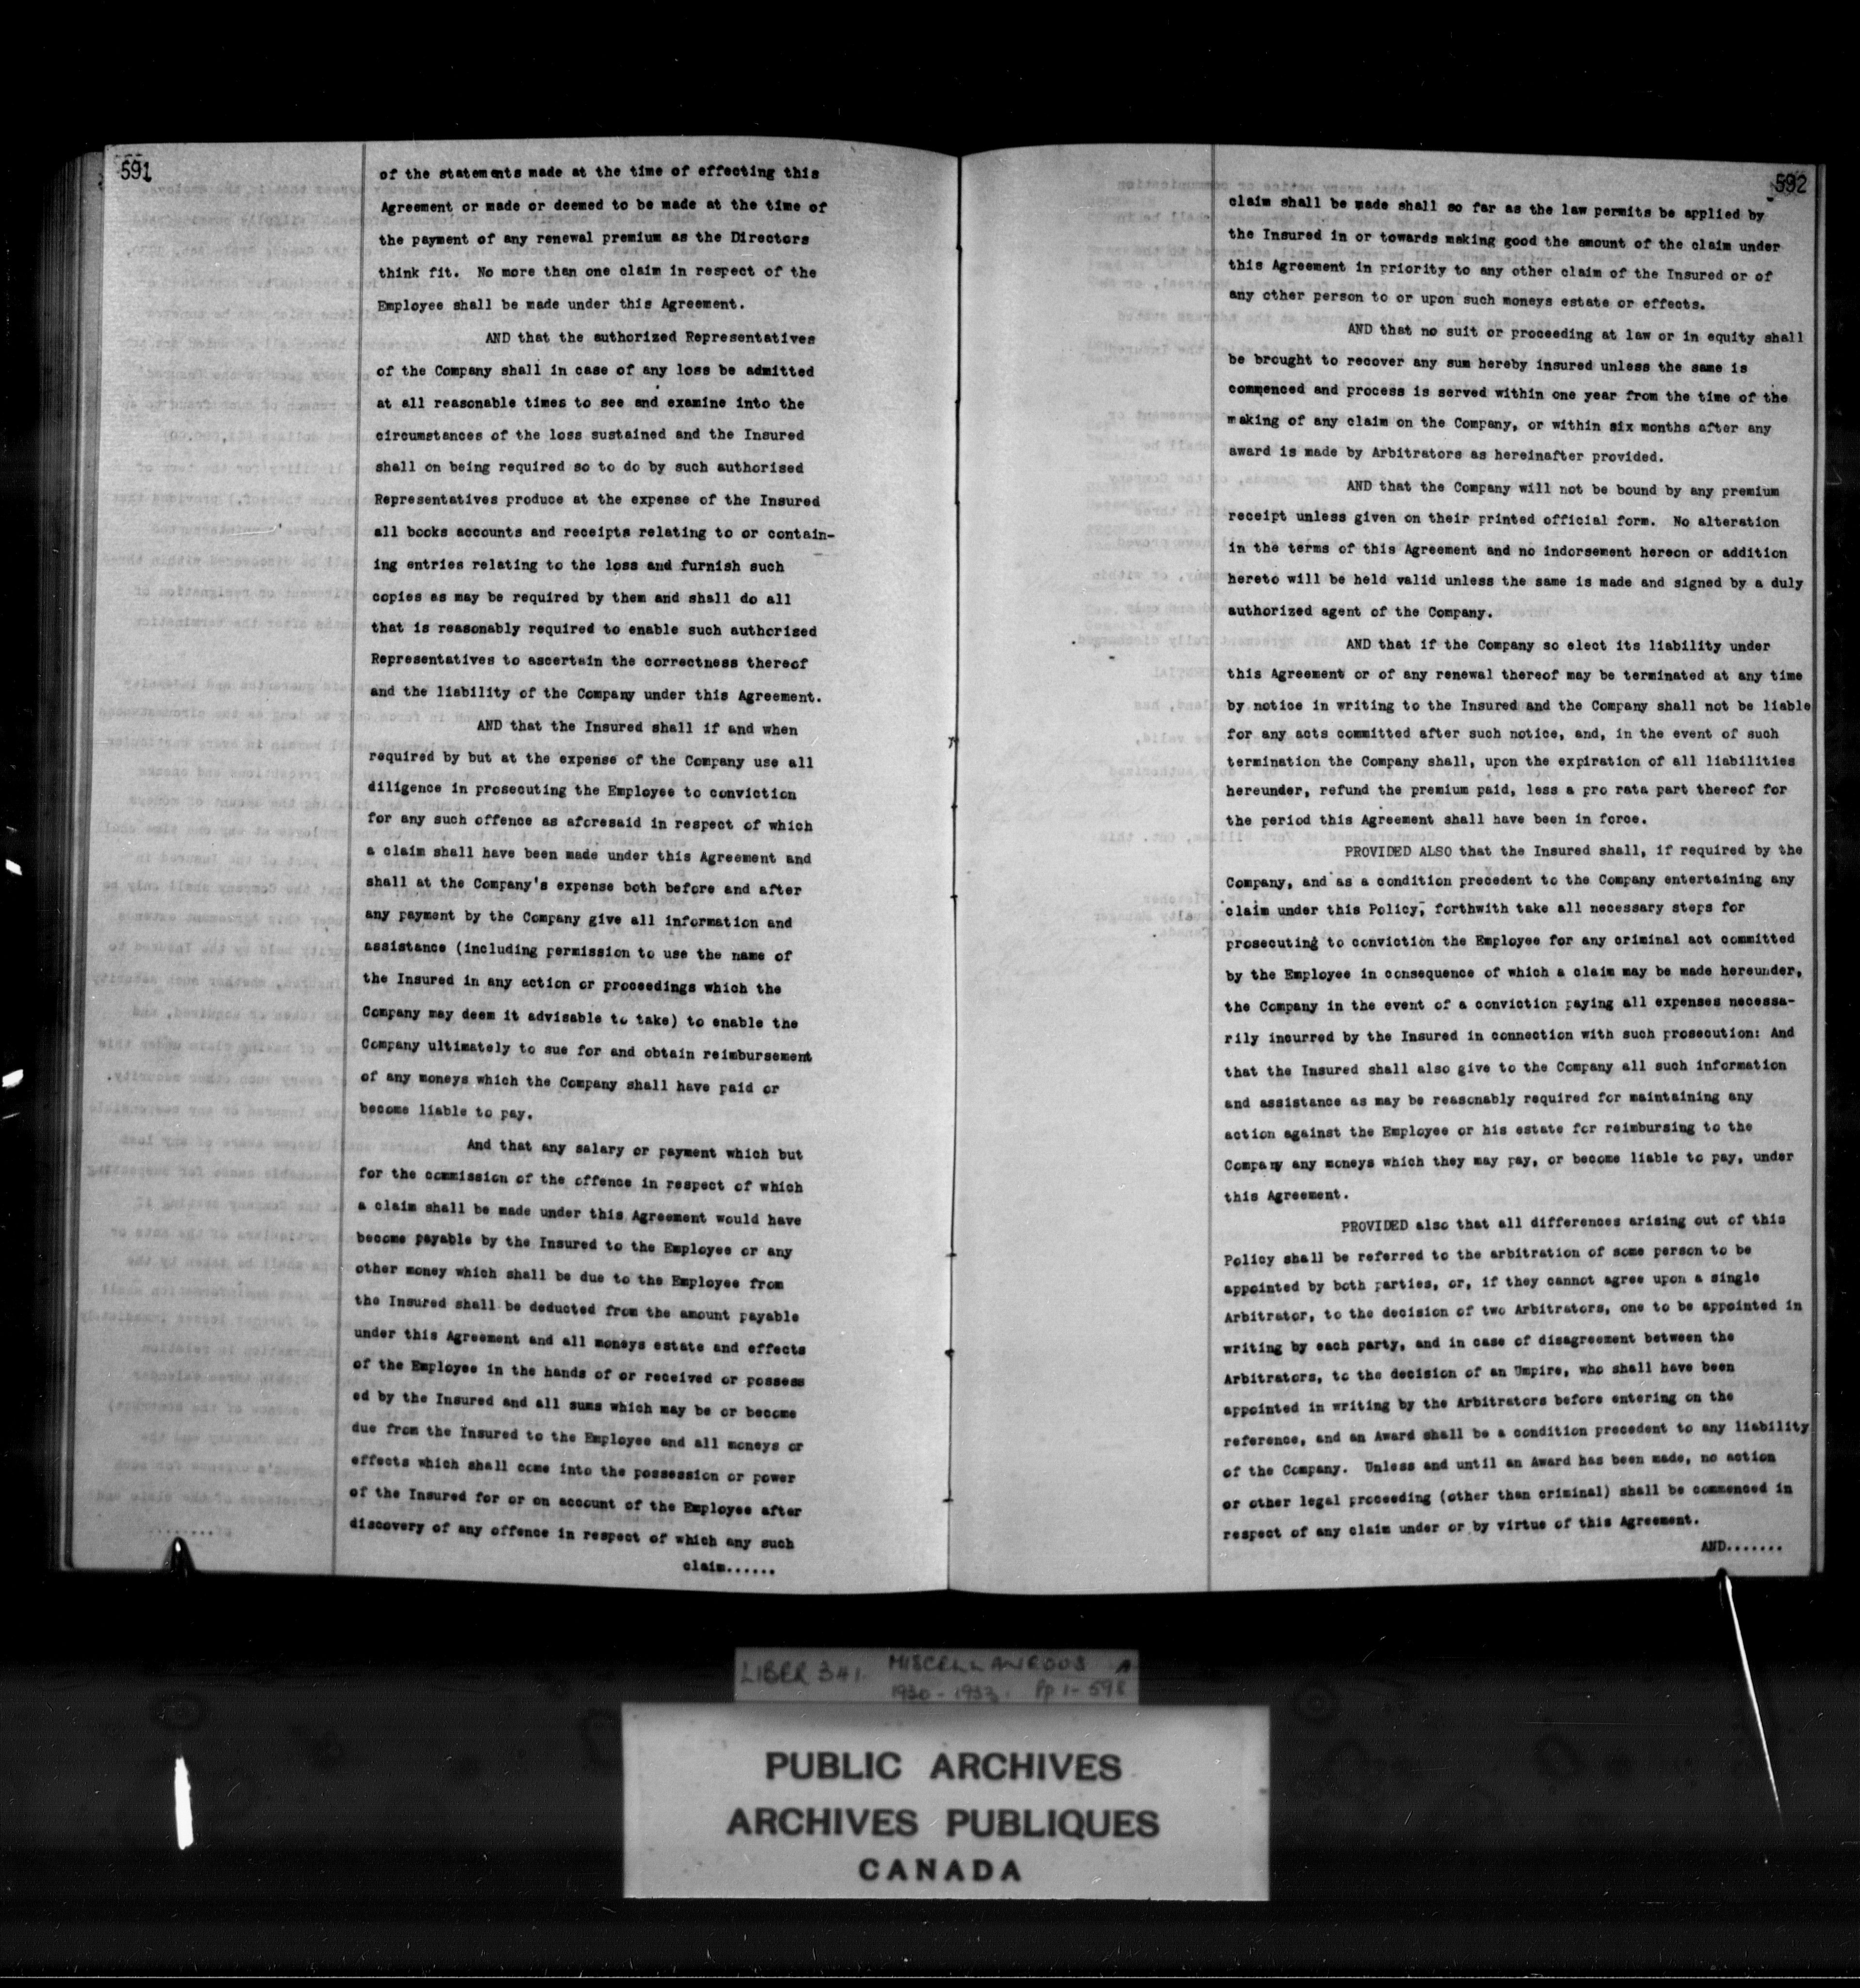 591
of the statements made at the time of effecting this
Agreement or made or deemed to be made at the time of
the payment of any renewal premium as the Directors
think fit. No more than one claim in respect of the
Employee shall be made under this Agreement.
AND that the authorized Representatives
of the Company shall in case of any loss be admitted
at all reasonable times to see and examine into the
circumstances of the loss sustained and the Insured
shall on being required so to do by such authorised
Representatives produce at the expense of the Insured
all books accounts and receipts relating to or contain-
ing entries relating to the loss and furnish such
copies as may be required by them and shall do all
that is reasonably required to enable such authorised
Representatives to ascertain the correctness thereof
and the liability of the Company under this Agreement.
AND that the Insured shall if and when
required by but at the expense of the Company use all
diligence in prosecuting the Employee to conviction
for any such offence as aforesaid in respect of which
a claim shall have been made under this Agreement and
shall at the Company's expense both before and after
any payment by the Company give all information and
assistance (including permission to use the name of
the Insured in any action or proceedings which the
Company may deem it advisable to take) to enable the
Company ultimately to sue for and obtain reimbursement
of any moneys which the Company shall have paid or
become liable to pay.
And that any salary or payment which but
for the commission of the offence in respect of which
a claim shall be made under this Agreement would have
become payable by the Insured to the Employee or any
other money which shall be due to the Employee from
the Insured shall be deducted from the amount payable
under this Agreement and all moneys estate and effects
of the Employee in the hands of or received or possess
ed by the Insured and all sums which may be or become
due from the Insured to the Employee and all moneys or
effects which shall come into the possession or power
of the Insured for or on account of the Employee after
discovery of any offence in respect of which any such
claim......
592
claim shall be made shall so far as the law permits be applied by
the Insured in or towards making good the amount of the claim under
this Agreement in priority to any other claim of the Insured or of
any other person to or upon such moneys estate or effects.
AND that no suit or proceeding at law or in equity shall
be brought to recover any sum hereby insured unless the same is
commenced and process is served within one year from the time of the
making of any claim on the Company, or within six months after any
award is made by Arbitrators as hereinafter provided.
AND that the Company will not be bound by any premium
receipt unless given on their printed official form. No alteration
in the terms of this Agreement and no indorsement hereon or addition
hereto will be held valid unless the same is made and signed by a duly
authorized agent of the Company.
AND that if the Company so elect its liability under
this Agreement or of any renewal thereof may be terminated at any time
by notice in writing to the Insured and the Company shall not be liable
for any acts committed after such notice, and, in the event of such
termination the Company shall, upon the expiration of all liabilities
hereunder, refund the premium paid, less a pro rata part thereof for
the period this Agreement shall have been in force.
PROVIDED ALSO that the Insured shall, if required by the
Company, and as a condition precedent to the Company entertaining any
claim under this Policy, forthwith take all necessary steps for
prosecuting to conviction the Employee for any criminal act committed
by the Employee in consequence of which a claim may be made hereunder,
the Company in the event of a conviction paying all expenses necessa-
rily incurred by the Insured in connection with such prosecution: And
that the Insured shall also give to the Company all such information
and assistance as may be reasonably required for maintaining any
action against the Employee or his estate for reimbursing to the
Company any moneys which they may pay, or become liable to pay, under
this Agreement.
PROVIDED also that all differences arising out of this
Policy shall be referred to the arbitration of some person to be
appointed by both parties, or, if they cannot agree upon a single
Arbitrator, to the decision of two Arbitrators, one to be appointed in
writing by each party, and in case of disagreement between the
Arbitrators, to the decision of an Umpire, who shall have been
appointed in writing by the Arbitrators before entering on the
reference, and an Award shall be a condition precedent to any liability
of the Company. Unless and until an Award has been made, no action
or other legal proceeding (other than criminal) shall be commenced in
respect of any claim under or by virtue of this Agreement.
AND.......
LIBER 341. MISCELLANEOUS A
1930-1933. Pp 1-598
PUBLIC ARCHIVES
ARCHIVES PUBLIQUES
CANADA